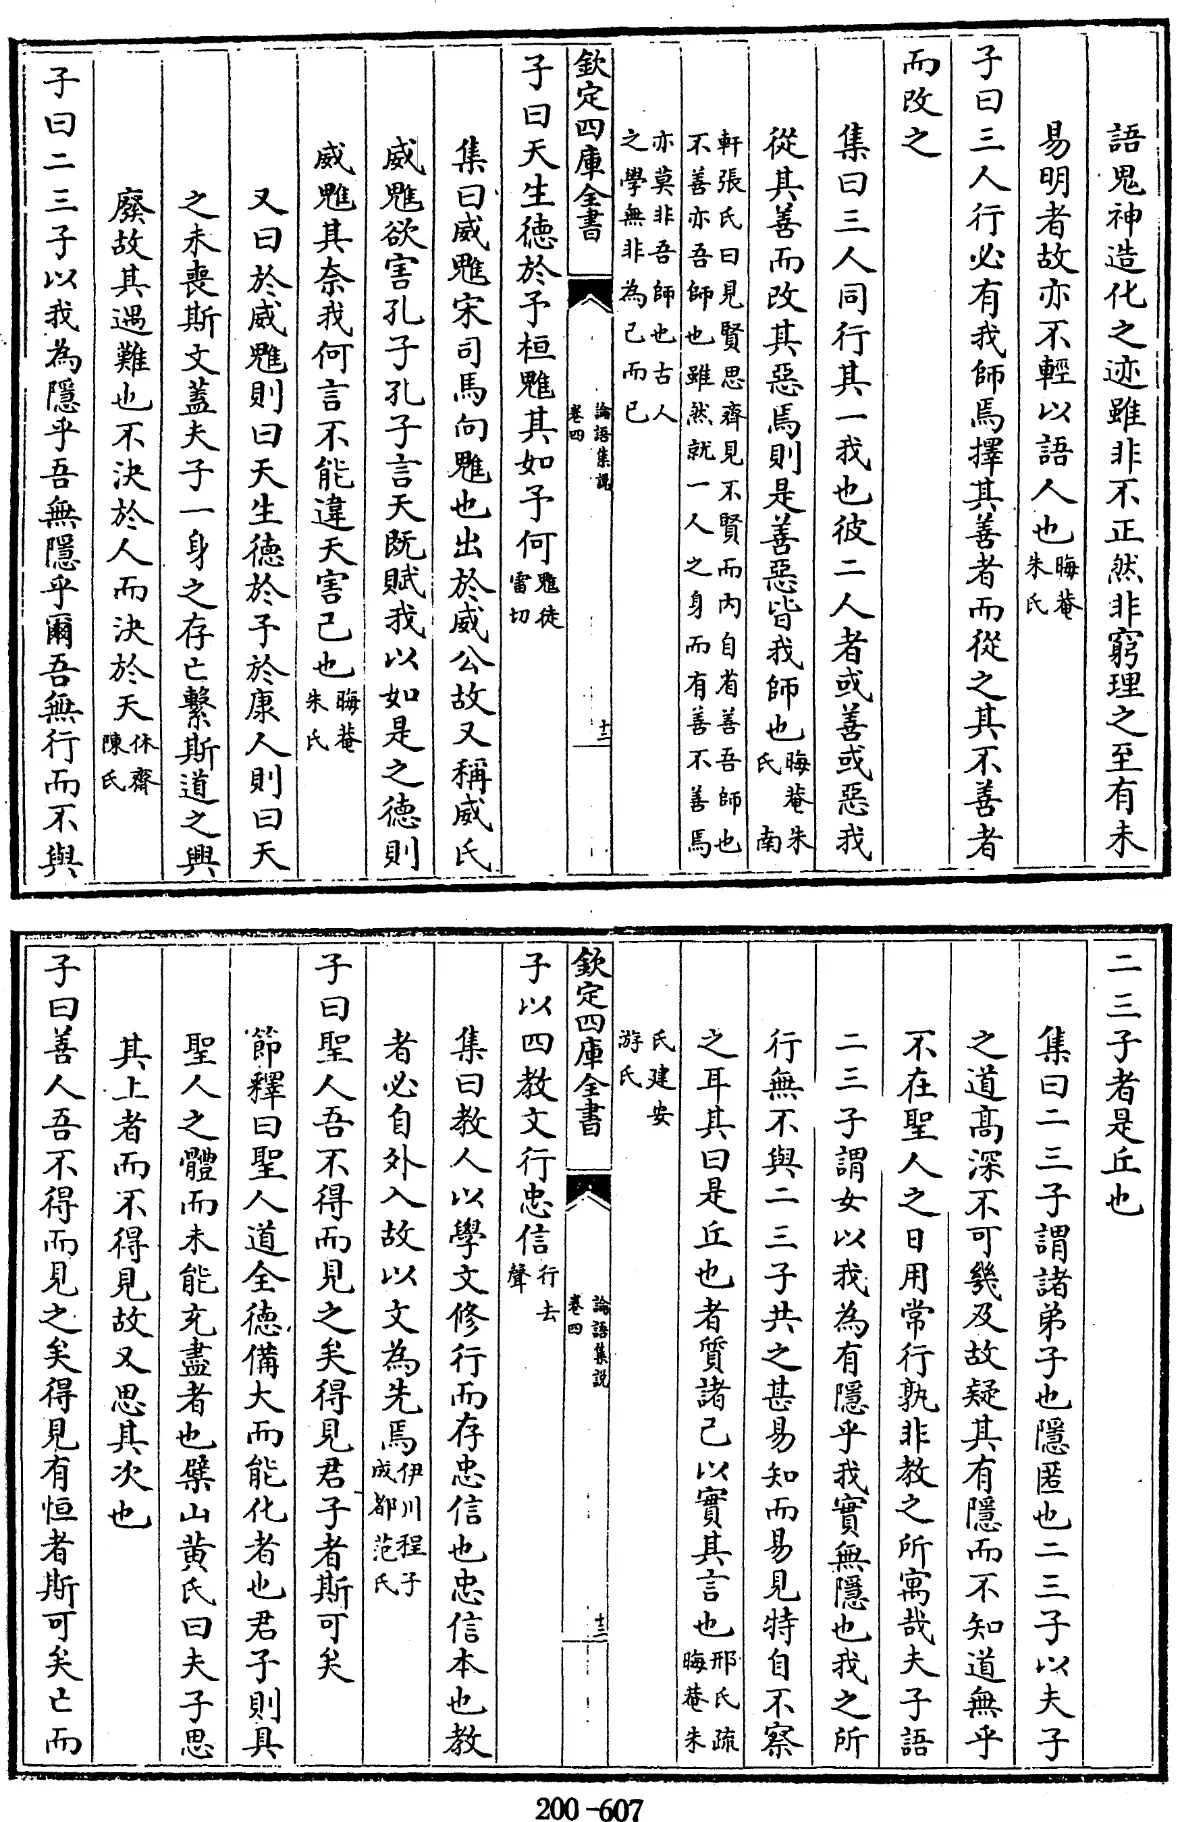 語鬼神造化之迹雖非不正然非窮理之至有未
易明者故亦不輕以語人也晦菴朱氏
子曰三人行必有我師焉擇其善者而從之其不善者
而改之
集曰三人同行其一我也彼二人者或善或惡我
從其善而改其惡焉則是善惡皆我師也晦菴朱氏 南
軒張氏曰見賢思齊見不賢而內自省善吾師也
不善亦吾師也雖然就一人之身而有善不善焉
亦莫非吾師也古人
之學無非為己而已
欽定四庫全書
論語集說
卷四
十二
子曰天生德於予桓魋其如予何魋徒雷切
集曰威魋宋司馬向魋也出於威公故又稱威氏
威魋欲害孔子孔子言天既賦我以如是之德則
威魋其奈我何言不能違天害己也晦菴朱氏
又曰於威魋則曰天生德於予於康人則曰天
之未喪斯文蓋夫子一身之存亡繫斯道之興
廢故其遇難也不決於人而決於天休齋陳氏
子曰二三子以我為隱乎吾無隱乎爾吾無行而不與
二三子者是丘也
集曰二三子謂諸弟子也隱匿也二三子以夫子
之道高深不可幾及故疑其有隱而不知道無乎
不在聖人之日用常行孰非教之所寓哉夫子語
二三子謂女以我為有隱乎我實無隱也我之所
行無不與二三子共之甚易知而易見特自不察
之耳其曰是丘也者質諸己以實其言也邢氏疏
晦菴朱
氏建安
游氏
欽定四庫全書
論語集說
卷四
十三
子以四教文行忠信行去聲
集曰教人以學文修行而存忠信也忠信本也教
者必自外入故以文為先焉伊川程子成都范氏
子曰聖人吾不得而見之矣得見君子者斯可矣
節釋曰聖人道全德備大而能化者也君子則具
聖人之體而未能充盡者也檗山黃氏曰夫子思
其上者而不得見故又思其次也
子曰善人吾不得而見之矣得見有恒者斯可矣亡而
200-607